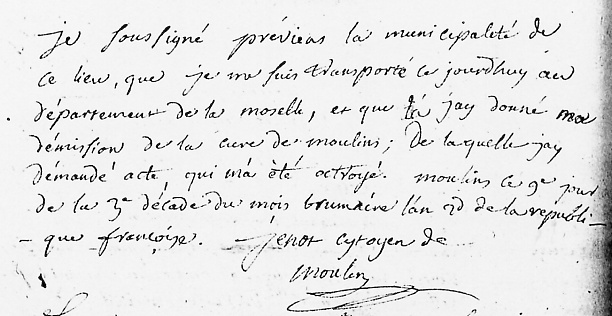 je soussigné préviens la municipalité de
ce lieu, que je me suis transporté ce jourdhuy au
département de la moselle, et que là jay donné ma
démission de la cure de moulins; de laquelle jay
demandé acte, qui m'a été octroyé. moulins ce 9e jour
de la 3e décade du mois brumaire l'an 2d de la republi-
-que françoise. jenot cytoyen de
moulin